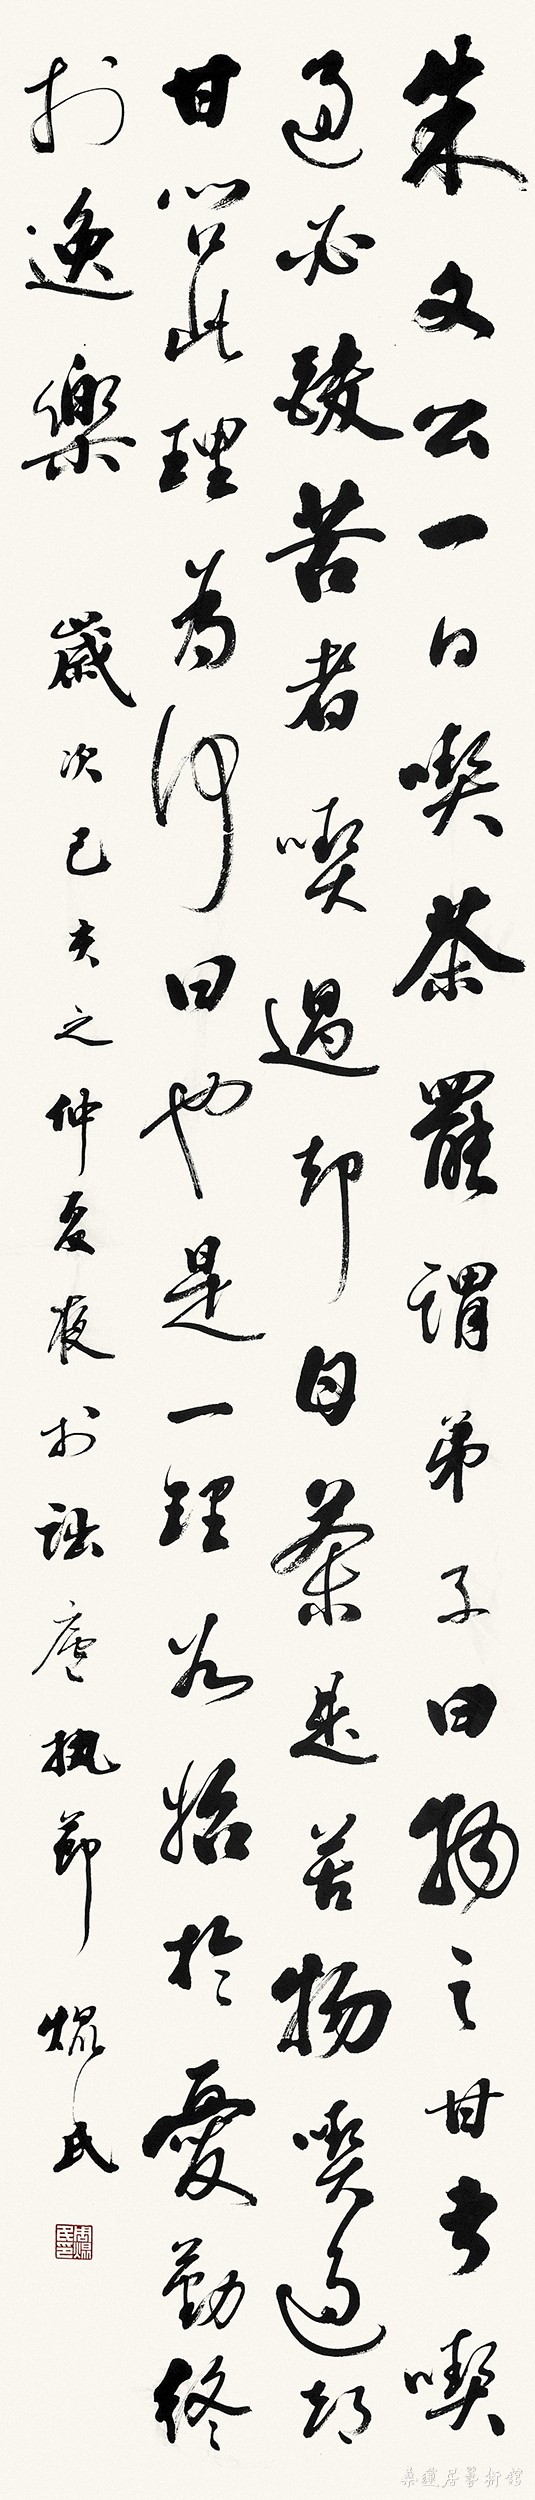 朱文公一日喫茶罷謂弟子曰物之甘者喫
過必酸苦者喫過却甘茶是苦物喫過却
甘問此理為何曰也是一理如始於憂勤終
於逸樂 歲次己亥之仲夏夜於 執節 焜民
周焜民印
蓮居藝術館